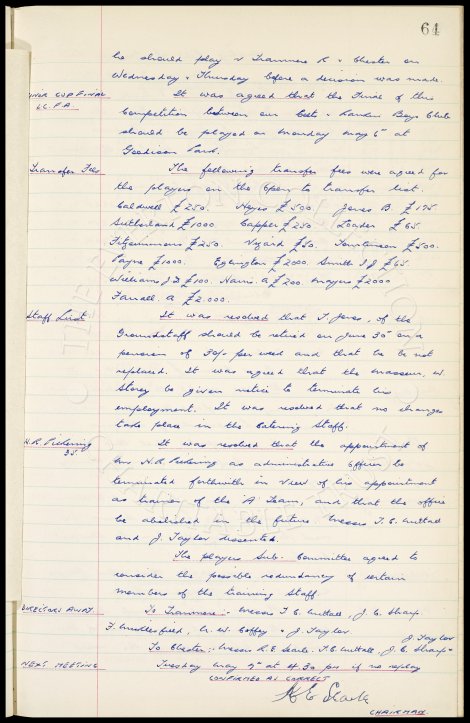 64
he should play v Tranmere R v Chester on
Wednesday & Thursday before a decision was made.
CUP FINAL
L.C.F.A.
It was agreed that the Final of this
Competition between our Colts & London Boys Club
should be played on Monday May 6th at
Goodison Park.
Transfer Fees
The following transfer fees were agreed for
the players on the Open to transfer list.
Caldwell £250. Hayes £500. Jones B. £175.
Sutherland £1000. Capper £250. Loader £65.
Fitzsimmons £250. Vizard £50. Tomlinson £500.
Payne £1000. Eglington £2000. Smith I J £65.
Williams J.D £100. Harris A £200. Mayers £2000
Farrall. A £2.000.
Staff List
It was resolved that T. Jones, of the
Groundstaff should be retired on June 30th on a
pension of 30/- per week and that he be not
replaced. It was agreed that the masseur, W
Storey be given notice to terminate his
employment. It was resolved that no changes
take place in the Catering Staff.
H.R. Pickering
It was resolved that the appointment of
Mr H.R. Pickering as administrative Officer be
terminated forthwith in view of his appointment
as trainer of the A Team, and that the office
be abolished in the future. Messrs T.C. Nuttall
and J. Taylor dissented.
The players Sub-Committee agreed to
consider the possible redundancy of certain
members of the training staff.
DIRECTORS AWAY
To Tranmere:- Messrs T C. Nuttall, J. C. Sharp.
F. Micklesfield, Dr. W. Coffey & J Taylor
J. Taylor
To Chester:- Messrs R E Searle. T.C. Nuttall, J. C. Sharp &
NEXT MEETING
Tuesday May 7th at 4.30 pm if no replay
CONFIRMED AS CORRECT
R E Searle
CHAIRMAN.